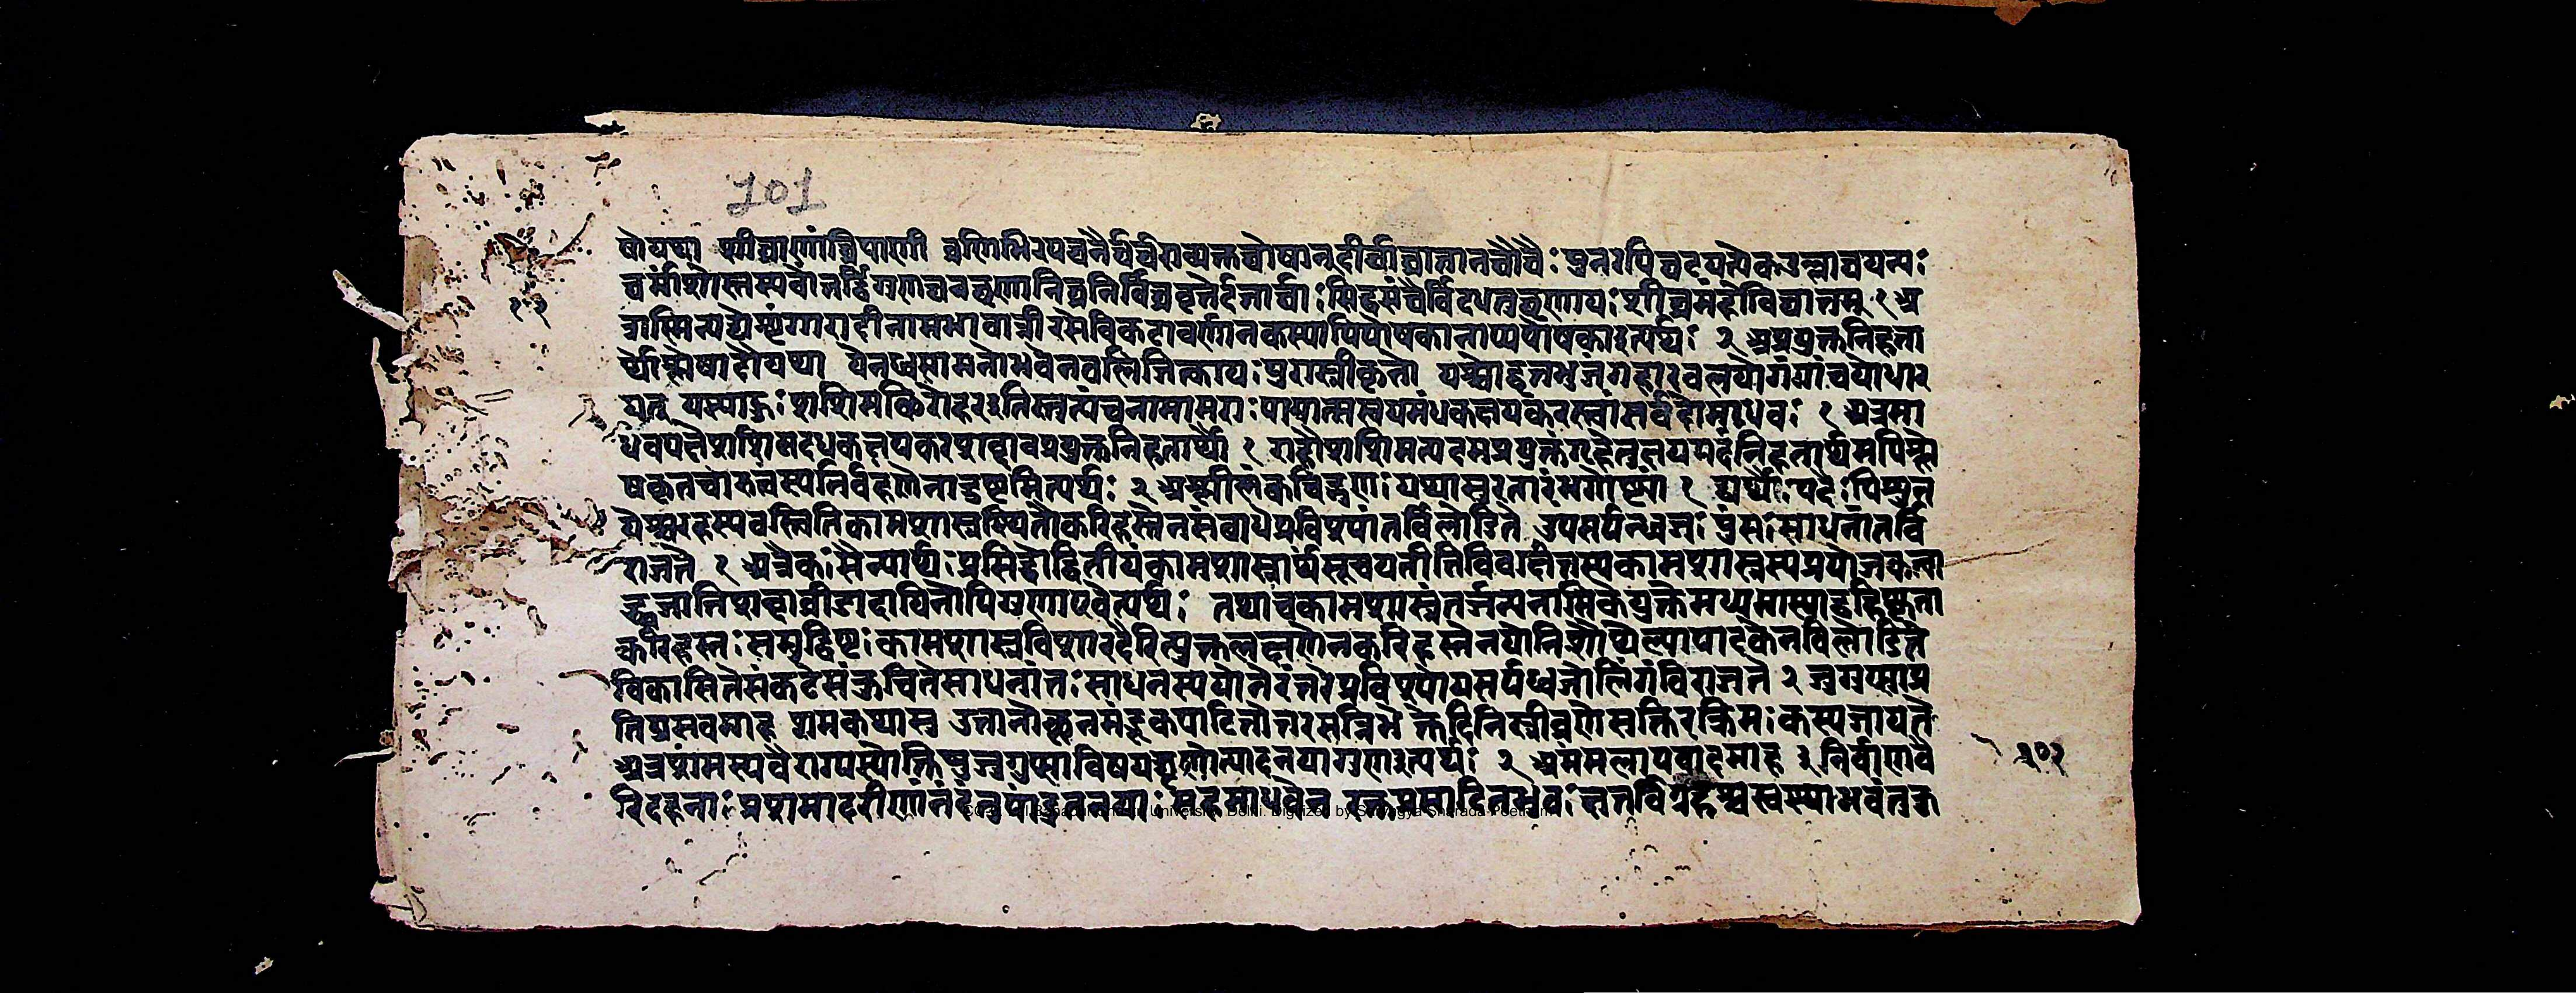 101
षोयथा शीर्णघ्राणांघ्रिपाणीन् व्रणिभिरपघनैर्घर्घराव्यक्तघोषान्दीर्घाघ्रातानघौघैः पुनरपिघटयत्येकउल्लाघयन्यः
घर्मांशोस्तस्यवोन्तर्द्विगुणघनघृणानिघ्ननिर्विघ्नवृत्तेर्दत्तार्घाः सिद्धसंघैर्विदधतुघृणयः शीघ्रमंहोविघातम् १ अ
त्रास्मिन्पद्येशृंगारादीनामभावान्नीरसेविकटवर्णानकस्यापिपोषकानाप्यपोषकाइत्यर्थः २ अप्रयुक्तनिहता
र्थौश्लेषादौयथा येनध्वस्तमनोभवेनबलिजित्कायः पुरास्त्रीकृतो यश्चोद्वृत्तभुजंगहारवलयोगंगांचयोधार
यत् यस्याहुः शशिमच्छिरोहरइतिस्तुत्यंचनामामराः पायात्सस्वयमंधकक्षयकरस्त्वांसर्वदोमाधवः १ अत्रमा
धवपक्षेशशिमदंधकक्षयकरशब्दावप्रयुक्तनिहतार्थौ १ राहौशशिमत्पदमप्रयुक्तंगृहेतुक्षयपदंनिहतार्थमपिश्ले
षकृतचारुत्वस्यनिर्वहणेनादुष्टमित्यर्थः २ अश्लीलंक्वचिद्गुणः यथासुरतारंभगोष्ठ्यां १ द्यर्थैः पदैः पिशुन
येच्चरहस्यवस्त्वितिकामशास्त्रस्थितौकरिहस्तेनसंबाधेप्रविश्यांतर्विलोडिते उपसर्पन्ध्वजः पुंसः साधनांतर्वि
राजते १ अत्रैकः सैन्यार्थः प्रसिद्धोद्वितीयंकामशास्त्रार्थंसूचयतीतिविवक्षितस्यकामशास्त्रस्यप्रयोजकत्वा
द्ध्वजातिशब्दाव्रीडादायिनोपिगुणाएवेत्यर्थः तथाचकामशास्त्रंतर्जन्यनामिकेयुक्तेमध्यमास्याद्बहिष्कृता
करिहस्तः समुद्दिष्टः कामशास्त्रविशारदैरित्युक्तलक्षणेनकरिहस्तेनयोनिशैथिल्यापादकेनविलोडिते
विकासितेसंकटेसंकुचितेसाधनांतः साधनस्ययोनेरंतरेप्रविश्योपसर्पध्वजोलिंगंविराजते २ जुगुप्साप्र
तिप्रसवमाह शमकथासु उत्तानोच्छूनमंडूकपाटितोदरसन्निभे क्लेदिनिस्त्रीव्रणेसक्तिरकृमेः कस्यजायते
अत्रशमस्यवैराग्यस्योक्तिषुजुगुप्साविषयघृणोत्पादनयागुणइत्यर्थः २ अमंगलापवादमाह ३ निर्वाणवै
रिदहनाः प्रशमादरीणांनंदंतुपांडुतनयाः सहमाधवेन रक्तप्रसाधितभुवः क्षतविग्रहाश्चस्वस्थाभवंतुकु
१०१
CC-0. Lal Bahadur Shastri University, Delhi. Digitized by Sarvagya Sharada Peetham